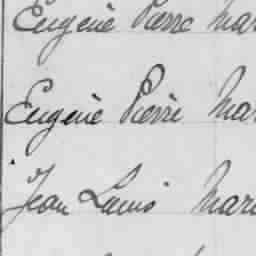 Eugène Pierre Mar
Eugène Pierre Mar
Jean Louis Mari